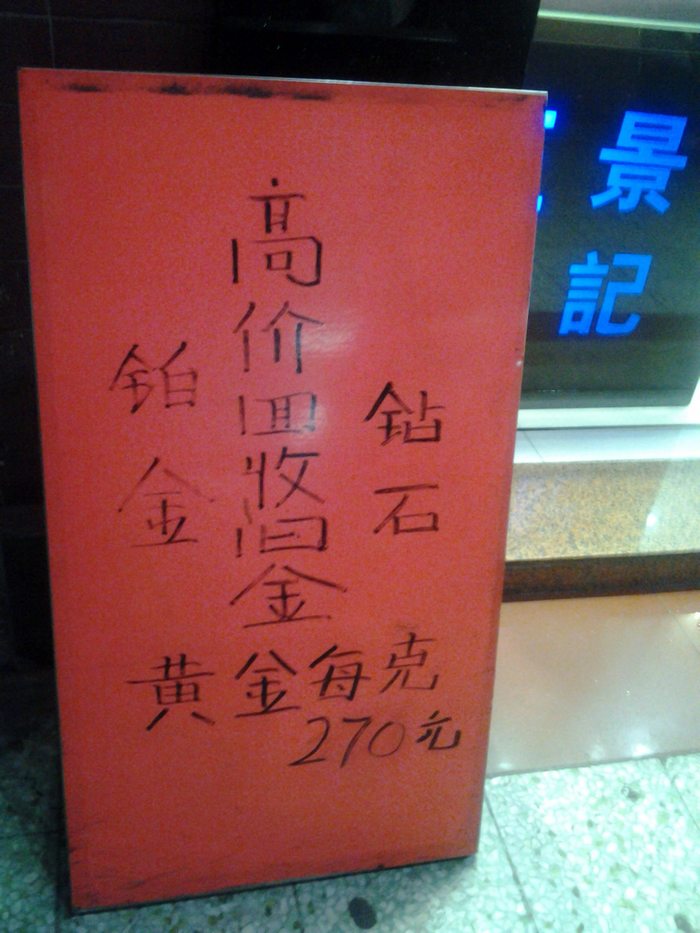 高价回收旧金
铂金
钻石
黄金每克
270元
景
記